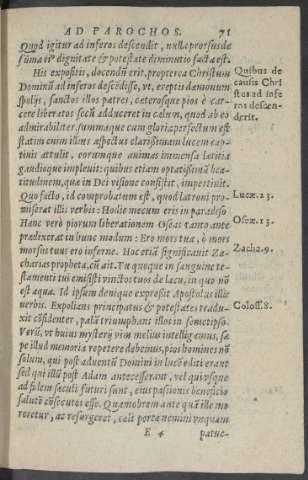 AD PAROCHOS. 71
Quod igitur ad inferos descendit, nulla prorsus de
sũma eiꝰ dignitate & potestate diminutio facta est.
His expositis, docendũ erit, propterea Christum
Dominũ ad inferos descẽdisse, vt, ereptis dæmonum
spolijs, sanctos illos patres, cæterosque pios è car-
cere liberatos secũ adduceret in cælum, quod ab eo
admirabiliter, summaque cum gloria perfectum est
statim enim illius aspectus clarissimam lucem cap-
tiuis attulit, eorumque animas immensa lætitia
gaudioque impleuit: quibus etiam optatissimã bea-
titudinem, quæ in Dei visione consistit, impertiuit.
Quo facto, id comprobatum est, quod latroni pro-
miserat illis verbis: Hodie mecum eris in paradiso
Hanc verò piorum liberationem Oseas tanto ante
prædixerat in hunc modum: Ero mors tua, ô mors
morsus tuus ero inferne. Hoc etiã significauit Za-
charias propheta, cũ ait. Tu quoque in sanguine te-
stamenti tui emisisti vinctos tuos de lacu, in quo nõ
est aqua. Id ipsum denique expressit Apostolus illis
verbis. Expolians principatus & potestates tradu-
xit cõfidenter, palã triumphans illos in semetipso.
Verũ, vt huius mysterij vim melius intelligamus, sæ-
pe illud memoria repetere debemus, pios homines nõ
solum, qui post aduentũ Domini in lucẽ editi erant
sed qui illũ post Adam antecesserant, vel qui vsque
ad finem sæculi futuri sunt, eius passionis beneficio
salutẽ cõsecutos esse. Quamobrem ante quã ille mo
reretur, ac resurgeret, cæli portæ nemini vnquam
E 4 patue-
Quibus de
causis Chri
stus ad infe
ros descen-
derit.
Lucæ. 23.
Oseæ. 13.
Zacha. 9.
Coloss. 8.